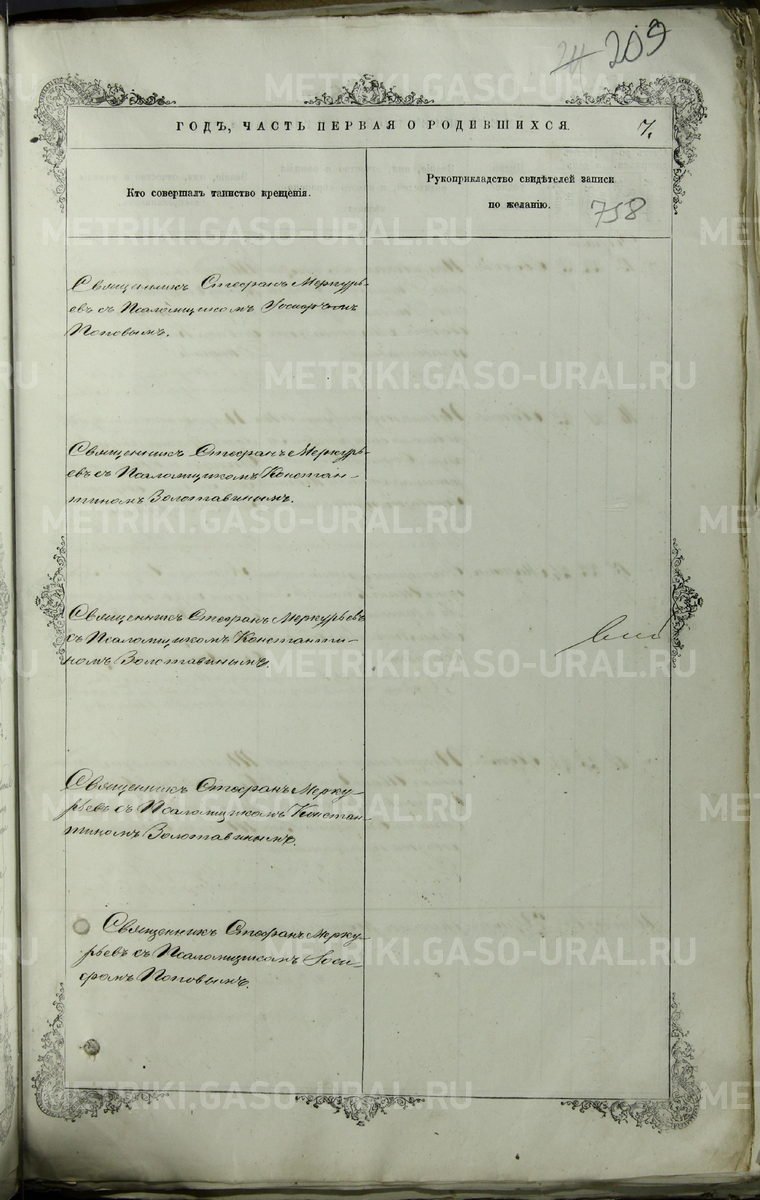 24 209
ГОДЪ, ЧАСТЬ ПЕРВАЯ О РОДЕВШИХСЯ.
7.
Кто совершалъ таинство крещенія.
Рукоприкладство свидѣтелей записи
по желанію.
758
Священникъ Стефанъ Меркурь-
евъ съ Псаломщикомъ Іосифомъ
Поповымъ.
Священникъ Стефанъ Меркурь-
евъ съ Псаломщикомъ Констан-
тиномъ Золотавинымъ.
Священникъ Стефанъ Меркурьевъ
съ Псаломщикомъ Константи-
номъ Золотавинымъ.
Священникъ Стефанъ Мерку-
рьевъ съ Псаломщикомъ Констан-
тиномъ Золотавинымъ.
Священникъ Стефанъ Мерку-
рьевъ съ Псаломщикомъ Іоси-
фомъ Поповымъ.
METRIKI.GASO-URAL.RU